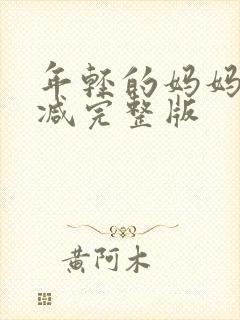 年轻的妈妈
减完整版
黄阿木